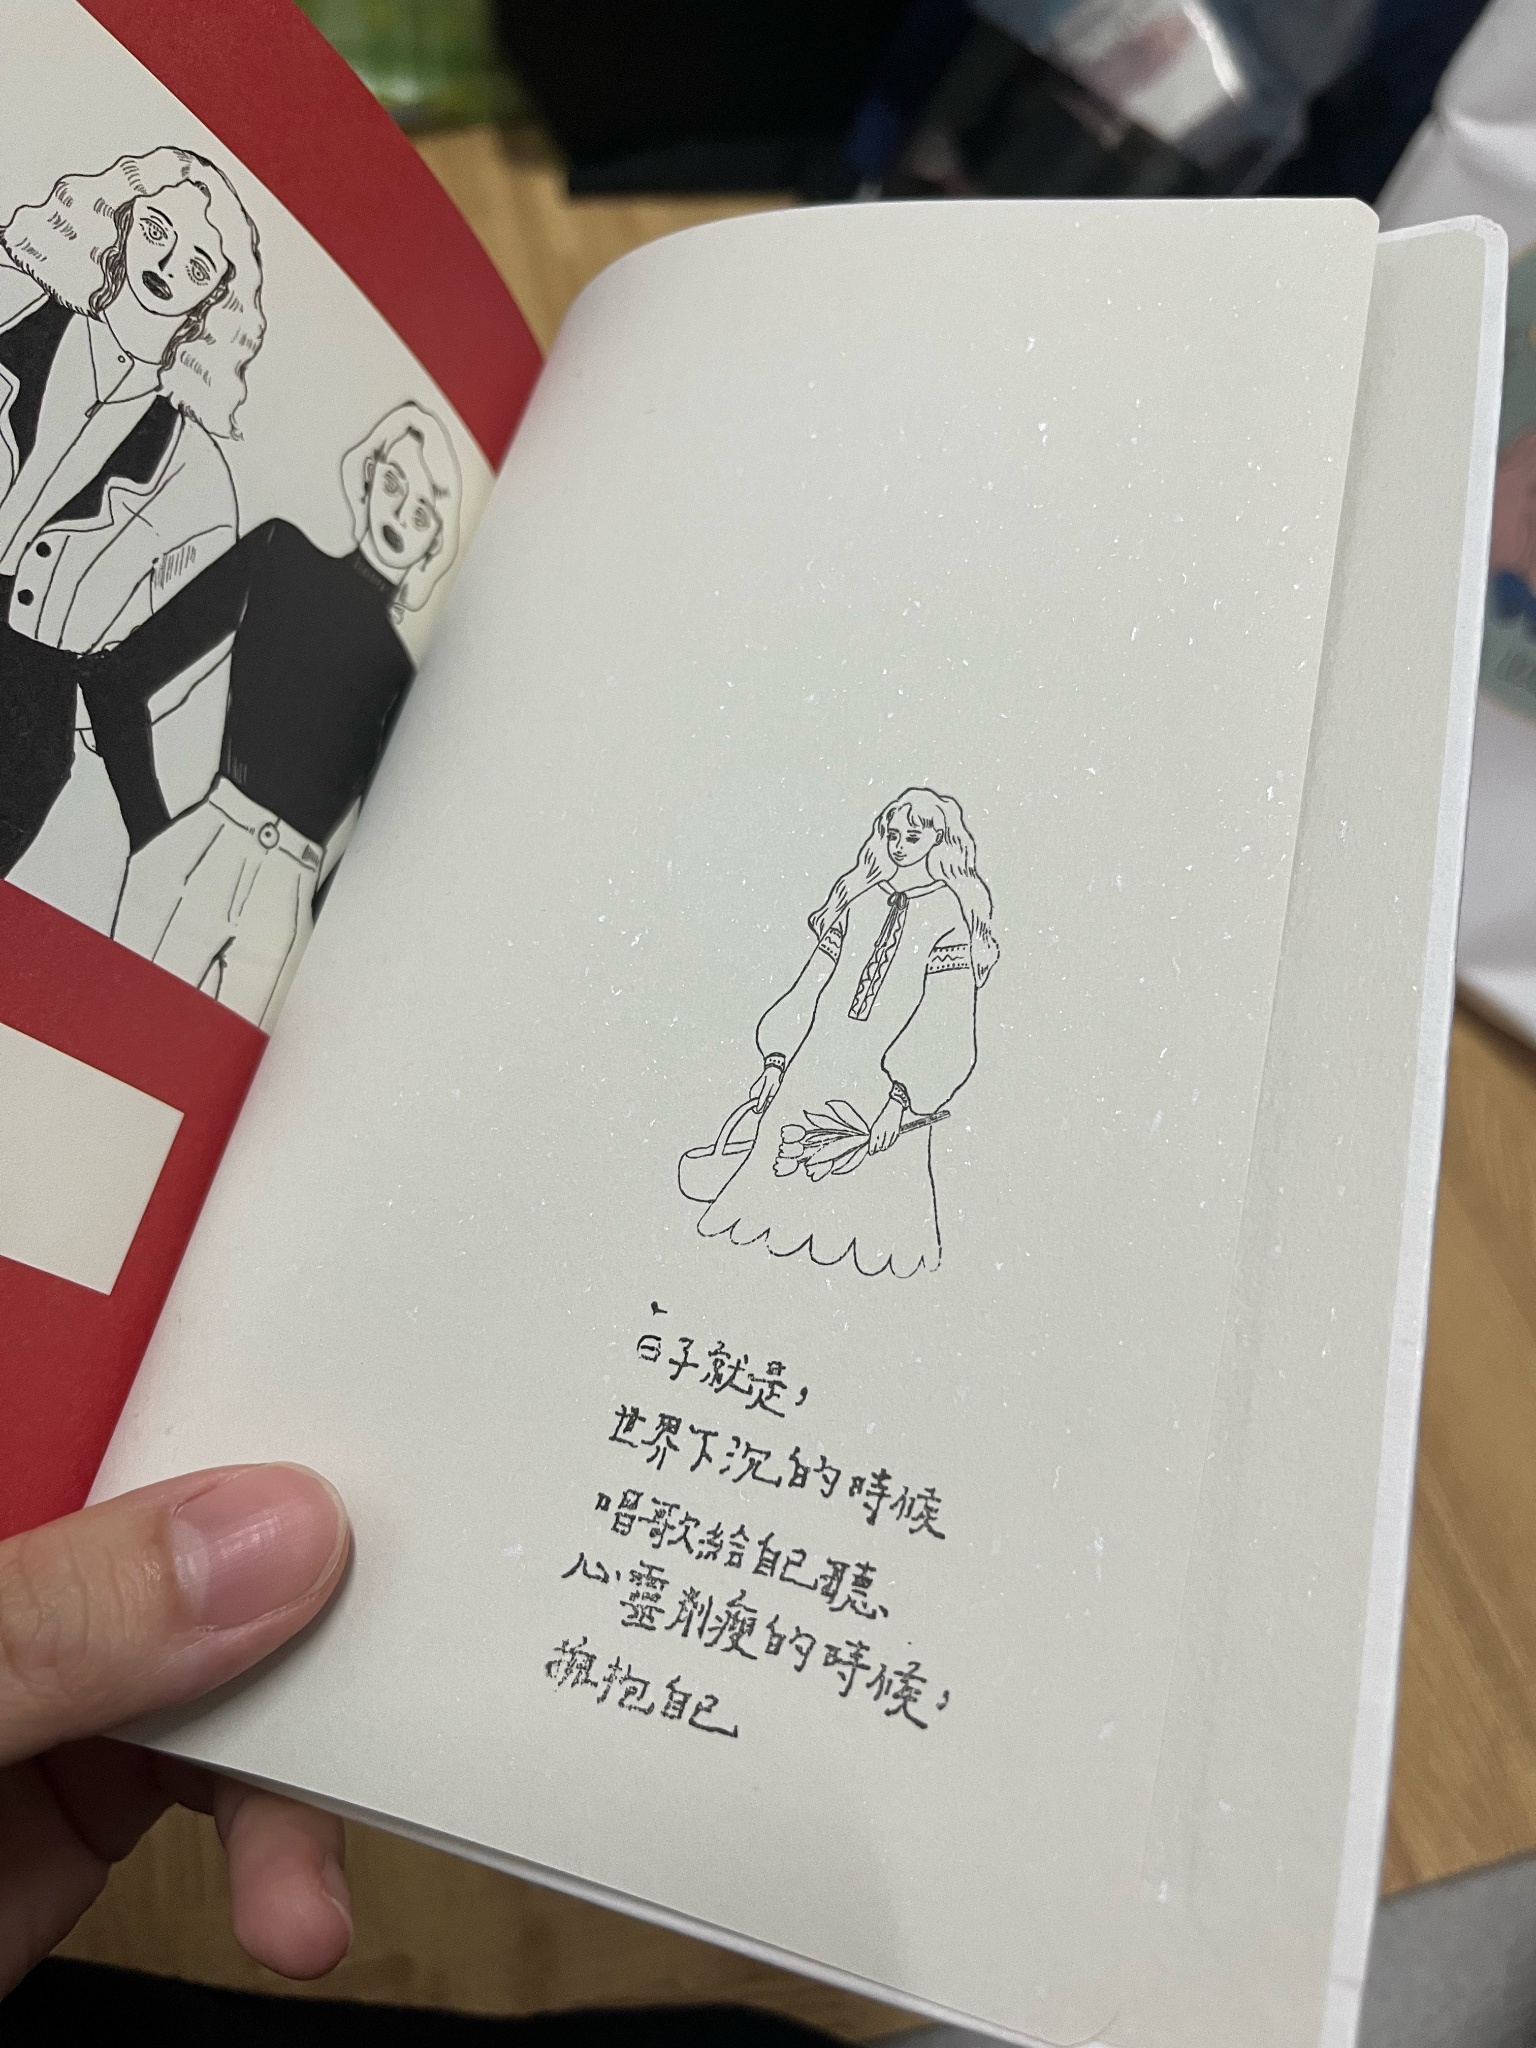 日子就是，
世界下沉的時候
唱歌給自己聽
心靈削瘦的時候，
擁抱自己